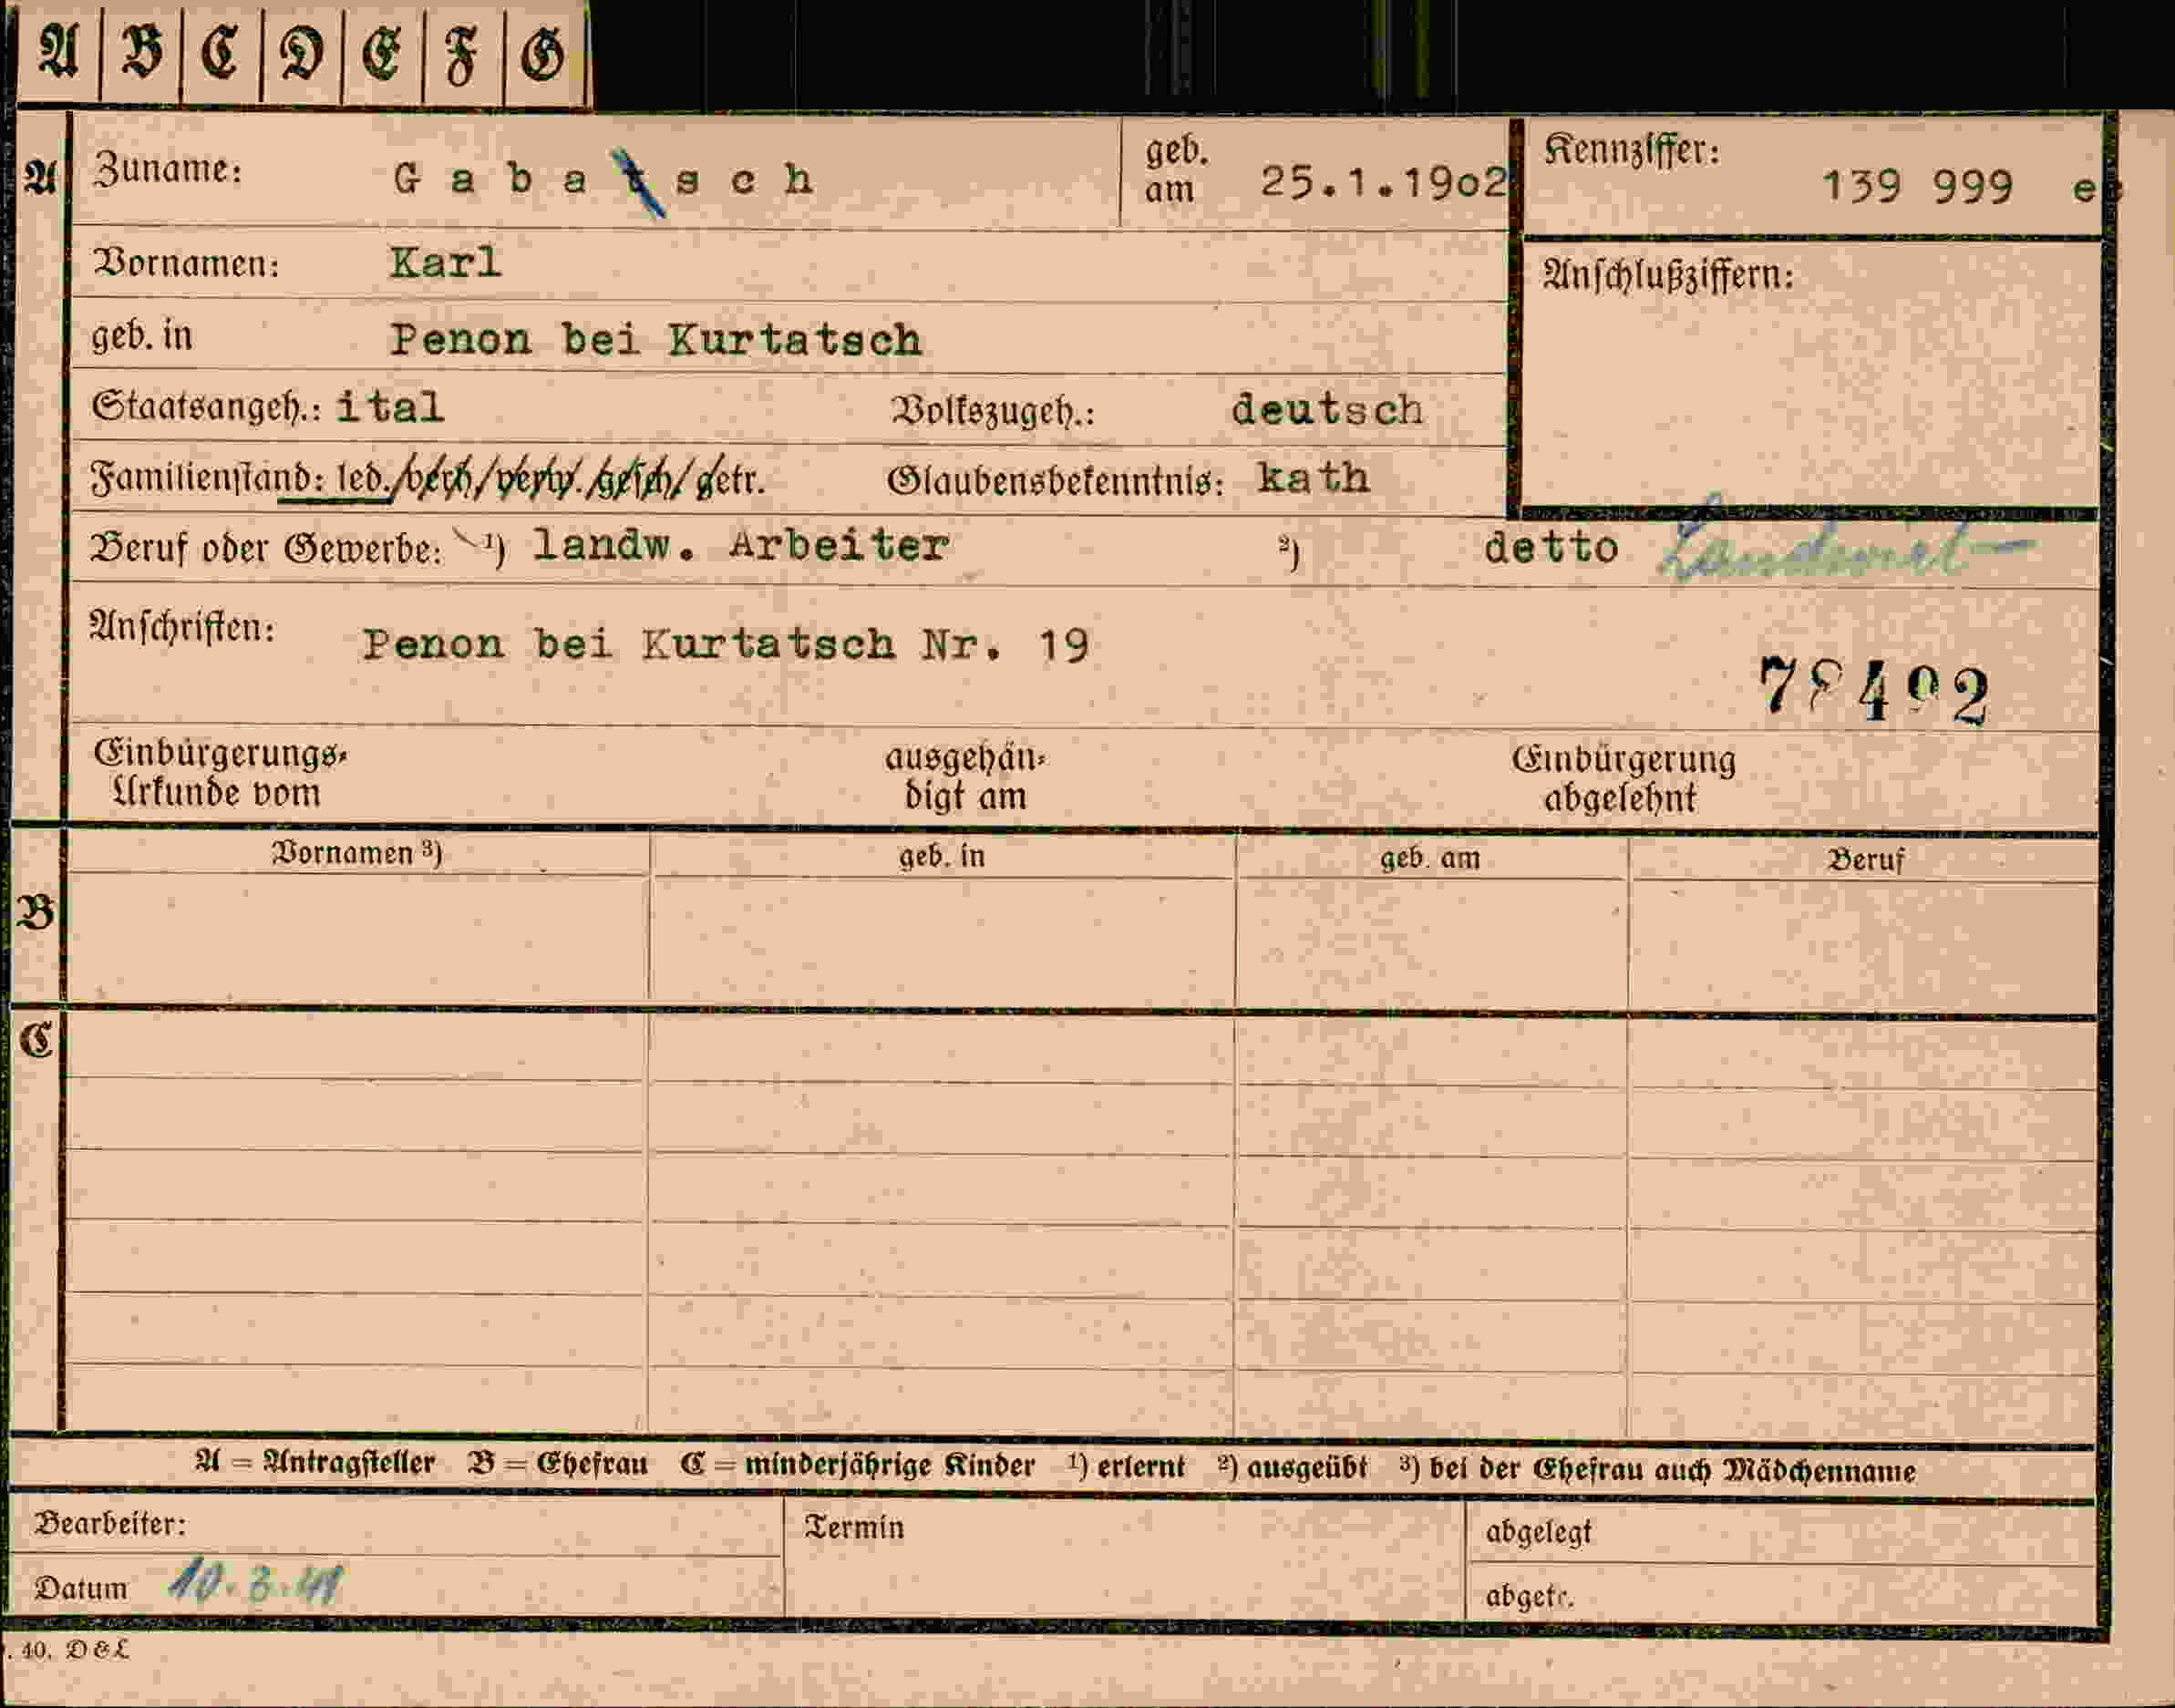 A B C D E F G
A Zuname: Gabatsch geb. am 25.1.1902 Kennziffer: 139 999 e
Vornamen: Karl Anschlußziffern:
geb. in Penon bei Kurtatsch
Staatsangeh.: ital Volkszugeh.: deutsch
Familienstand: led./verh/verw./gesch/getr. Glaubensbekenntnis: kath
Beruf oder Gewerbe: ¹) landw. Arbeiter ²) detto Landwirt
Anschriften: Penon bei Kurtatsch Nr. 19
78492
Einbürgerungs- ausgehän- Einbürgerung
Urkunde vom digt am abgelehnt
Vornamen ³) geb. in geb. am Beruf
B
C
A = Antragsteller B = Ehefrau C = minderjährige Kinder ¹) erlernt ²) ausgeübt ³) bei der Ehefrau auch Mädchenname
Bearbeiter: Termin abgelegt
Datum 10.3.41 abgetr.
. 40. D&L